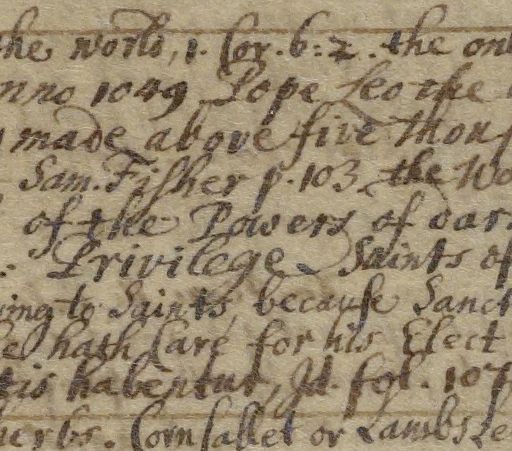 the world, 1. Cor. 6: 2. the
nno 1049 Pope Leo the
made above five
Sam. Fisher p. 103 the
of the Powers of
Privilege Saints of
ing to Saints, because
hath Care for his Elect
tis habentur, Id. fol. 107
herbs. Corn sallet or Lambs